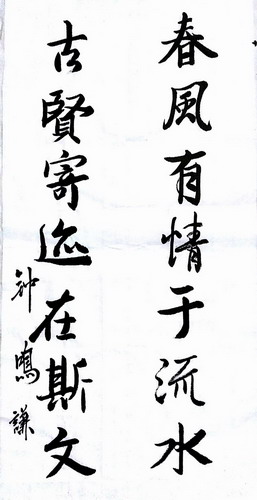 春風有情于流水
古賢寄迹在斯文
钟鳴謙